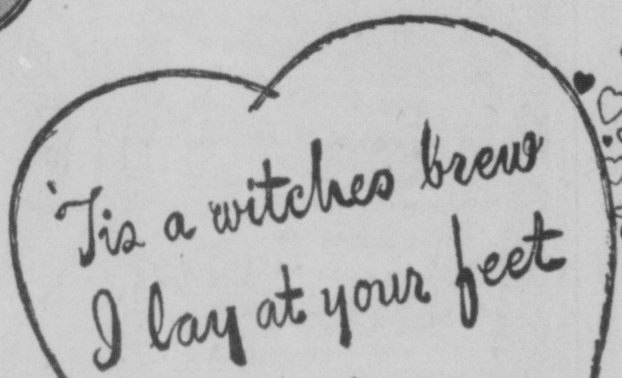 'Tis a witches brew
I lay at your feet